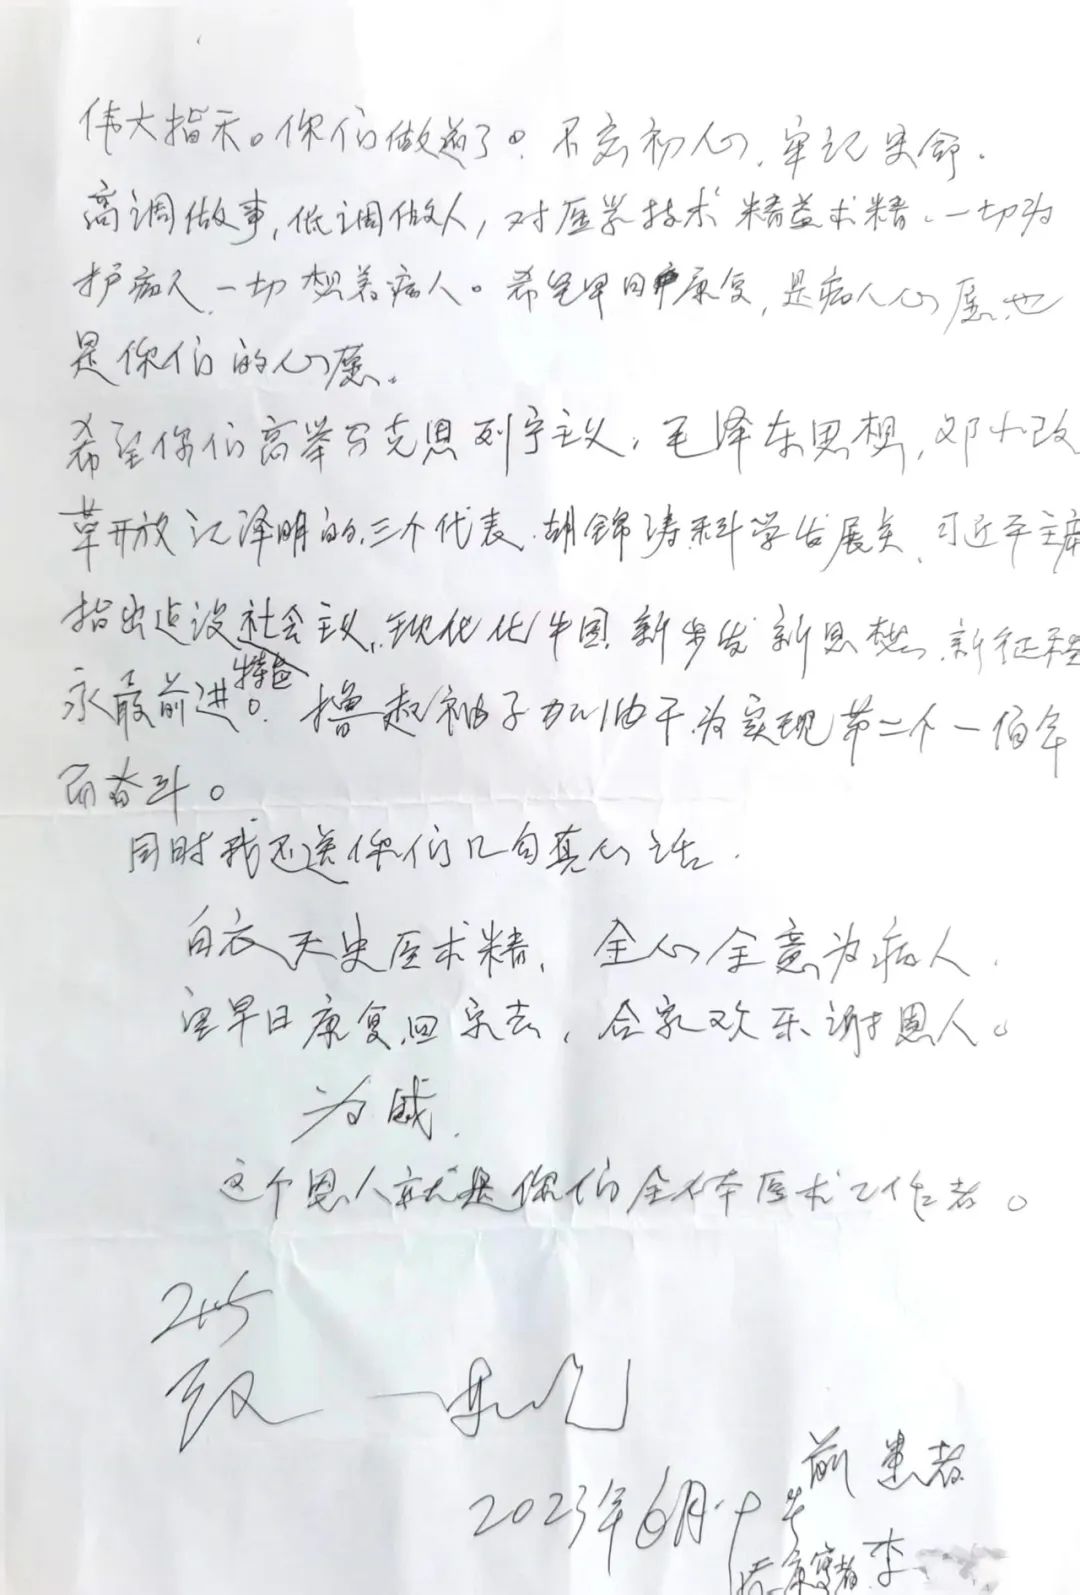 伟大指示。你们做道了。不忘初心,牢记史命.
高调做事,低调做人,对医学技术精益求精.一切为
护病人,一切想着病人。希望早日康复,是病人心愿,也
是你们的心愿。
希望你们高举马克思列宁主义,毛泽东思想,邓小改
革开放江泽明的三个代表.胡锦涛科学发展关,习近平主席
指出追设社会主义,现代化中国.新步发新思想.新征程
特色
永最前进。撸起袖子加油干.为实现第二个一佰年
而奋斗。
同时我还送你们几句真心话.
白衣天史医术精,全心全意为病人.
望早日康复回家去,合家欢乐谢恩人。
为感.
这个恩人就是你们全体医术工作者。
致
前患者
2023年6月十
康复者 李